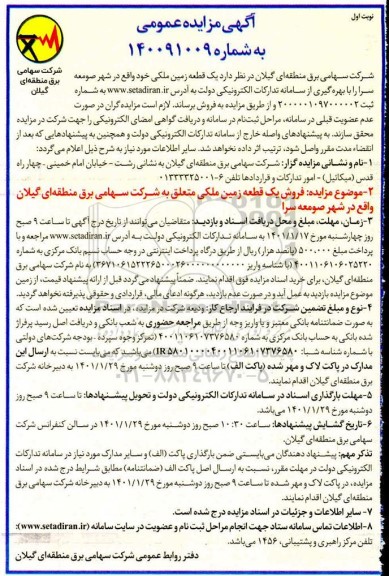 نوبت اول
آگهی مزایده عمومی
به شماره ۱۴۰۰۹۱۰۰۹
شرکت سهامی
برق منطقه‌ای
گیلان
شرکت سهامی برق منطقه‌ای گیلان در نظر دارد یک قطعه زمین ملکی خود واقع در شهر صومعه
سرا را با بهره‌گیری از سامانه تدارکات الکترونیکی دولت به آدرس www.setadiran.ir به شماره
ثبت و از طریق مزایده به فروش برساند. لازم است مزایده گران در صورت
عدم عضویت قبلی در سامانه، مراحل ثبت‌نام در سامانه و دریافت گواهی امضای الکترونیکی را جهت شرکت در مزایده
محقق سازند. به پیشنهادهای واصله خارج از سامانه تدارکات الکترونیکی دولت و همچنین به پیشنهادهایی که بعد از
انقضاء مدت مقرر واصل شود، ترتیب اثر داده نخواهد شد. سایر اطلاعات مورد نیاز به شرح ذیل اعلام می‌گردد:
۱-نام و نشانی مزایده گزار: شرکت سهامی برق منطقه‌ای گیلان به نشانی رشت - خیابان امام خمینی - چهار راه
قدس (میکائیل) - امور تدارکات و قراردادها تلفن ۶-۰۱۳۳۳۳۲۵۰۰۱
۲-موضوع مزایده: فروش یک قطعه زمین ملکی متعلق به شرکت سهامی برق منطقه‌ای گیلان
واقع در شهر صومعه سرا
۳-زمان، مهلت، مبلغ و محل دریافت اسناد و بازدید: متقاضیان می‌توانند از تاریخ درج آگهی تا ساعت ۹ صبح
روز چهارشنبه مورخ ۱۴۰۱/۱/۱۷ به سامانه تدارکات الکترونیکی دولت به آدرس www.setadiran.ir مراجعه و با
پرداخت مبلغ ۵۰۰،۰۰۰ (پانصد هزار) ریال از طریق درگاه پرداخت اینترنتی در وجه حساب بانک مرکزی به شماره
(با شناسه واریز ) به نام شرکت سهامی برق
منطقه‌ای گیلان، برای خرید اسناد مزایده فوق اقدام نمایند. ضمنا پیشنهاد می‌گردد قبل از ارائه پیشنهاد قیمت، از زمین
موضوع مزایده بازدید به عمل آید و در صورت عدم بازدید، هرگونه ادعای مالی، قراردادی و حقوقی پذیرفته نخواهد گردید.
۴-نوع و مبلغ تضمین شرکت در فرایند ارجاع کار: ودیعه شرکت در مزایده، در اسناد مزایده تعیین شده است که
به صورت ضمانتنامه بانکی معتبر و یا واریز وجه از طریق مراجعه حضوری به شعب بانکی و دریافت اصل رسید پرفراژ
شده بانکی به حساب بانک مرکزی به شماره (تمرکز وجوه سپرده - بودجه شرکت‌های دولتی
با شماره شناسه شبا: ) می‌باشد که می‌بایست نسبت به ارسال این
مدارک در پاکت لاک و مهر شده (پاکت الف) تا ساعت ۹ صبح روز دوشنبه مورخ ۱۴۰۱/۱/۲۹ به دبیرخانه شرکت
برق منطقه‌ای گیلان اقدام نمایند.
۵-مهلت بارگذاری اسناد در سامانه تدارکات الکترونیکی دولت و تحویل پیشنهادها: تا ساعت ۹ صبح روز
دوشنبه مورخ ۱۴۰۱/۱/۲۹ می‌باشد.
۶-تاریخ گشایش پیشنهادها: ساعت ۱۰:۳۰ صبح روز دوشنبه مورخ ۱۴۰۱/۱/۲۹ در سالن کنفرانس شرکت
سهامی برق منطقه‌ای گیلان.
تذکر مهم: پیشنهاد دهندگان می‌بایستی ضمن بارگذاری پاکت (الف) و سایر مدارک مورد نیاز در سامانه تدارکات
الکترونیکی دولت در مهلت مقرر، نسبت به ارسال اصل پاکت الف (ضمانتنامه) مطابق شرایط درج شده در اسناد
مزایده، در پاکت لاک و مهر شده تا ساعت ۹ صبح روز دوشنبه مورخ ۱۴۰۱/۱/۲۹ به دبیرخانه شرکت برق
منطقه‌ای گیلان اقدام نمایند.
۷- سایر اطلاعات و جزئیات در اسناد مزایده درج شده است.
۸-اطلاعات تماس سامانه ستاد جهت انجام مراحل ثبت نام و عضویت در سایت سامانه (www.setadiran.ir):
تلفن مرکز راهبری و پشتیبانی، ۱۴۵۶ می‌باشد.
دفتر روابط عمومی شرکت سهامی برق منطقه‌ای گیلان